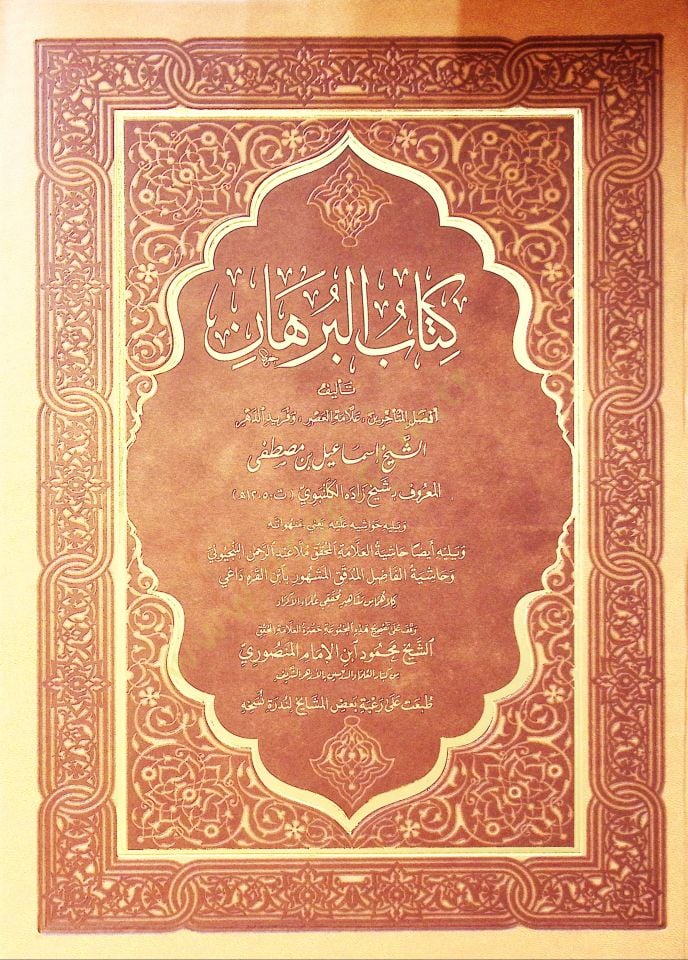 كِتَابُ البُرهَانِ
تأليف
أفضل المتأخرين، علامة العصر، وفريد الدهر
الشيخ إسماعيل بن مصطفى
المعروف بـ شيخ زاده الكلنبوي (ت ١٢٠٥هـ)
ويليه حواشيه عليه، يعني منهواته
ويليه أيضًا حاشية العلامة المحقق ملا عبد الرحمن البنجيوني
وحاشية الفاضل المدقق المشهور بابن القره داغي
كلاهما من مشاهير محققي علماء الأكراد
وقف على تصحيح هذه المجموعة حضرة العلامة المحقق
الشيخ محمود ابن الإمام المنصوري
من كبار العلماء والمدرسين بالأزهر الشريف
طبعت على رغبة بعض المشايخ لندرة نسخه